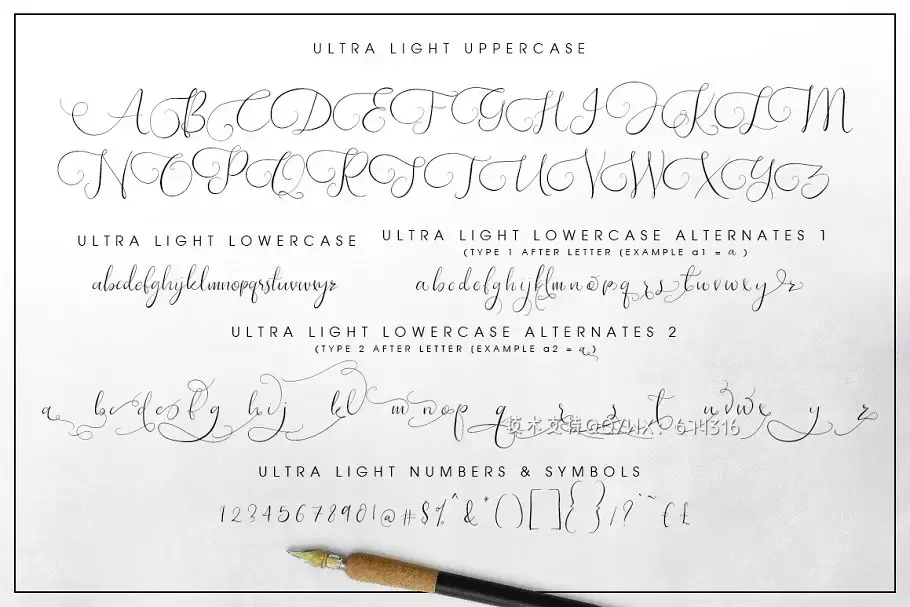 ULTRA LIGHT UPPERCASE
A B C D E F G H I J K L M
N O P Q R S T U V W X Y Z
ULTRA LIGHT LOWERCASE
abcdefghijklmnopqrstuvwxyz
ULTRA LIGHT LOWERCASE ALTERNATES 1
(TYPE 1 AFTER LETTER (EXAMPLE a1 = a )
a b c d e f g h i j k l m n o p q r s t u v w x y z
ULTRA LIGHT LOWERCASE ALTERNATES 2
(TYPE 2 AFTER LETTER (EXAMPLE a2 = a)
a b c d e f g h i j k l m n o p q r s t u v w x y z
技术支持@Q/WX：614316
ULTRA LIGHT NUMBERS & SYMBOLS
1234567890!@#$%^&*()[]{}/?¨~€£